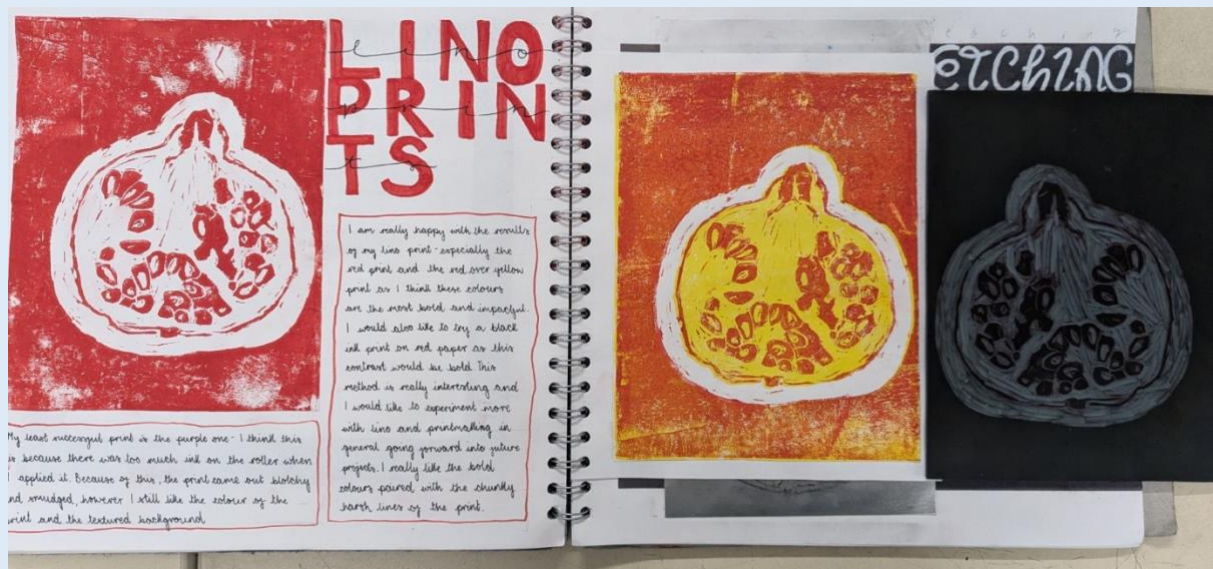 LINO
PRIN
TS
lino
prin
ts
I am really happy with the results
of my lino print - especially the
red print and the red over yellow
print as I think these colours
are the most bold and impactful.
I would also like to try a black
ink print on red paper as this
contrast would be bold. This
method is really interesting and
I would like to experiment more
with lino and printmaking in
general going forward into future
projects. I really like the bold
colours paired with the chunky
harsh lines of the print.
My least successful print is the purple one - I think this
is because there was too much ink on the roller when
I applied it. Because of this, the print came out blotchy
and smudged, however I still like the colour of the
print and the textured background
etching
ETCHING